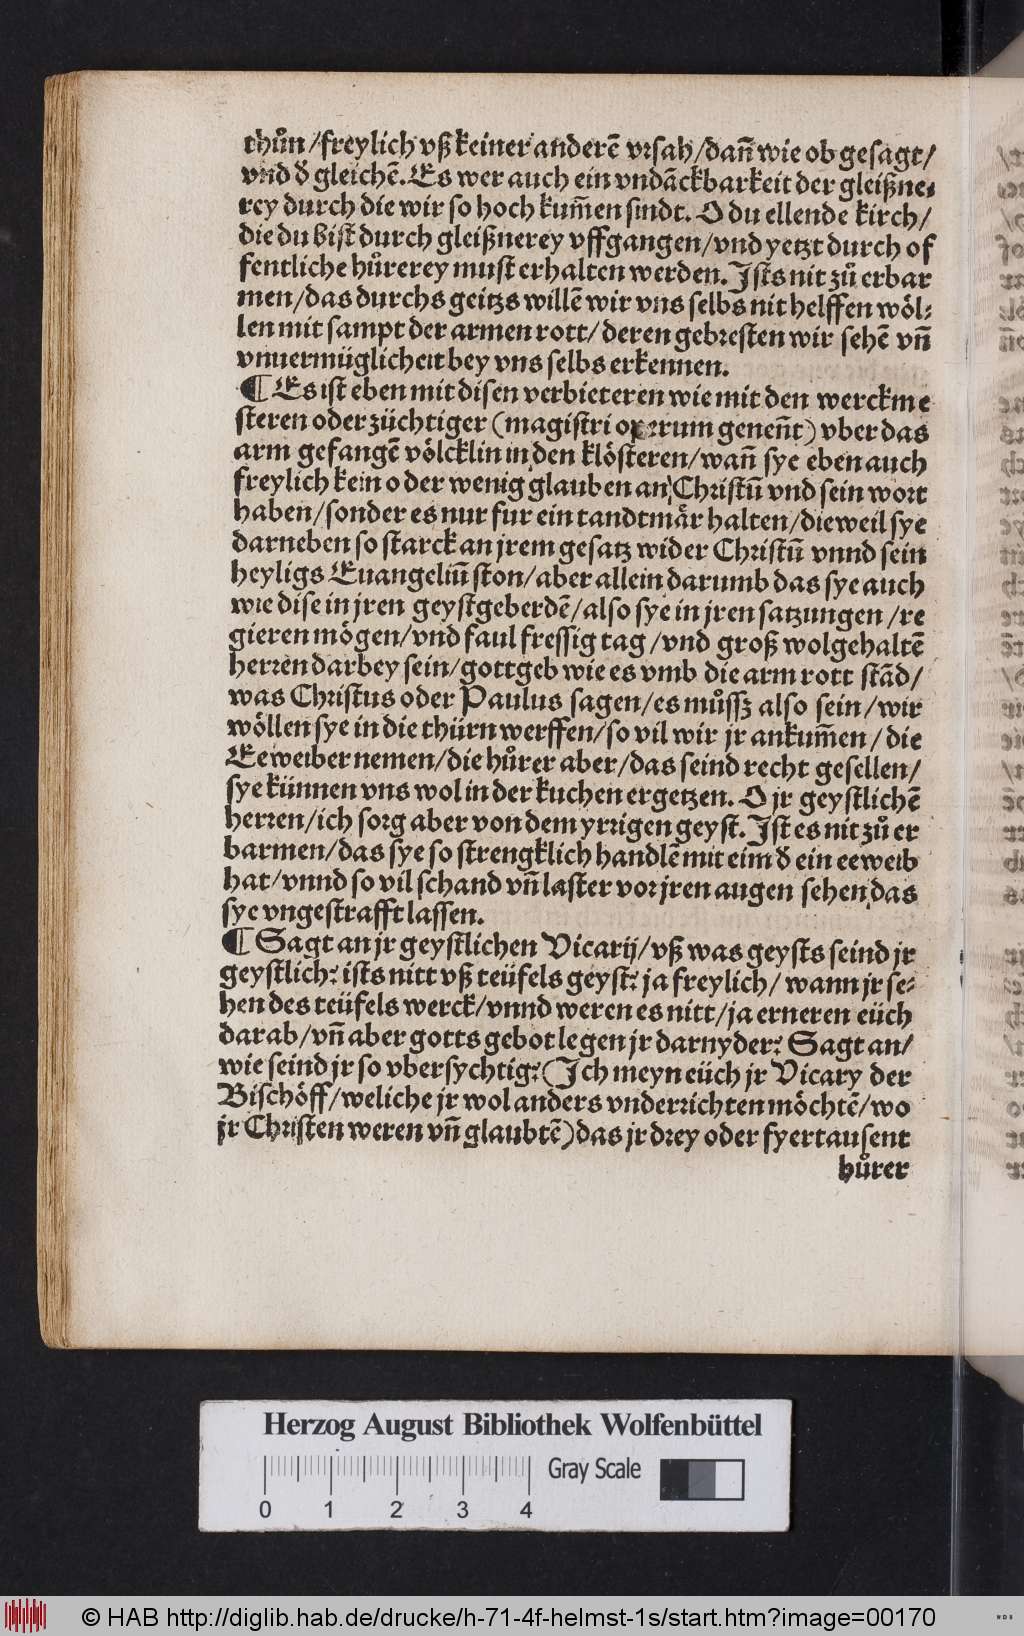 thůn /freylich vß keiner anderẽ vrsah/dañ wie ob gesagt/
vnd d̕ gleichẽ. Es wer auch ein vndãckbarkeit der gleißne⸗
rey durch die wir so hoch kum̃en sindt. O du ellende kirch/
die du bist durch gleißnerey vffgangen/vnd yetzt durch of
fentliche hůrerey must erhalten werden. Ists nit zů erbar
men/das durchs geitzs willẽ wir vns selbs nit helffen wöl⸗
len mit sampt der armen rott/deren gebresten wir sehẽ vñ
vnuermüglicheit bey vns selbs erkennen.
¶ Es ist eben mit disen verbieteren wie mit den werckme
steren oder züchtiger (magistri operum geneñt) vber das
arm gefangẽ völcklin in den klösteren/wañ sye eben auch
freylich kein oder wenig glauben an Christũ vnd sein wort
haben/sonder es nur fur ein tandtmär halten/dieweil sye
darneben so starck an jrem gesatz wider Christũ vnnd sein
heyligs Euangeliũ ston/aber allein darumb das sye auch
wie dise in jren geystgeberdẽ/also sye in jren satzungen /re
gieren mögen/vnd faul fressig tag /vnd groß wolgehaltẽ
herren darbey sein/gottgeb wie es vmb die arm rott stãd/
was Christus oder Paulus sagen/es můssz also sein/wir
wöllen sye in die thürn werffen/so vil wir jr ankum̃en / die
Eeweiber nemen/die hůrer aber/das seind recht gesellen/
sye künnen vns wol in der kuchen ergetzen. O jr geystlichẽ
herren/ich sorg aber von dem yrrigen geyst. Ist es nit zů er
barmen/das sye so strengklich handlẽ mit eim d̕ ein eeweib
hat/vnnd so vil schand vñ laster vor jren augen sehen das
sye vngestrafft lassen.
¶ Sagt an jr geystlichen Vicarij/vß was geysts seind jr
geystlich? ists nitt vß teüfels geyst? ja freylich/ wann jr se⸗
hen des teüfels werck/vnnd weren es nitt/ja erneren eüch
darab/vñ aber gotts gebot legen jr darnyder? Sagt an/
wie seind jr so vbersychtig? (Ich meyn eüch jr Vicary der
Bischöff/weliche jr wol anders vnderrichten möchtẽ/wo
jr Christen weren vñ glaubtẽ) das jr drey oder fyertausent
hůrer
Herzog August Bibliothek Wolfenbüttel
Gray Scale
0 1 2 3 4
© HAB http://diglib.hab.de/drucke/h-71-4f-helmst-1s/start.htm?image=00170